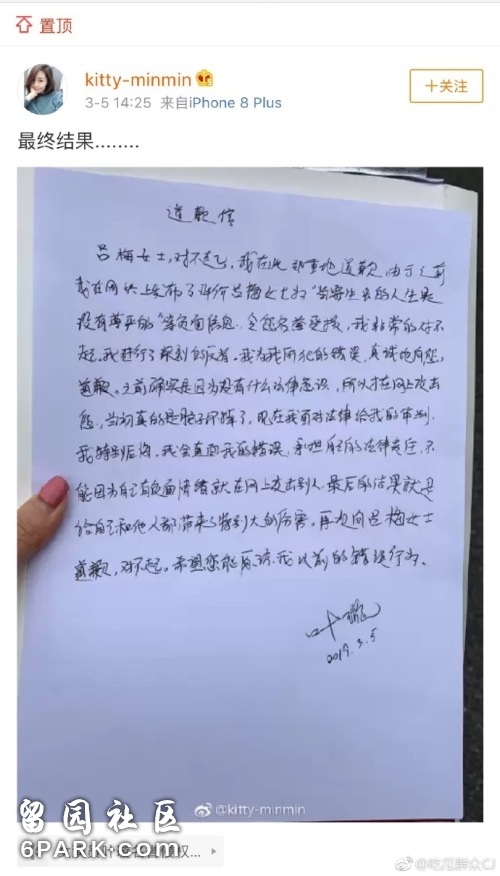 置顶
kitty-minmin
3-5 14:25 来自iPhone 8 Plus
+关注
最终结果........
道歉信
吕梅女士,对不起,我在此郑重地道歉,由于之前
我在网络上发布了评价吕梅女士为"当寄生虫的人生是
没有尊严的"等负面信息。令您名誉受损,我非常的对不
起,我进行了深刻的反省。我为我所犯的错误,真诚地向您
道歉。之前确实是因为没有什么法律意识,所以才在网上攻击
您,当初真的是脑子坏掉了,现在我面对法律给我的审判,
我特别后悔。我会直面我的错误,承担自己的法律责任,不
能因为自己有负面情绪就在网上攻击别人,最后的结果就是
给自己和他人都带来了特别大的伤害。再次向吕梅女士
道歉,对不起。希望您能原谅我以前的错误行为。
叶璇
2019.3.5
@kitty-minmin
留园社区
6PARK.com
权...
@吃瓜群众CJ